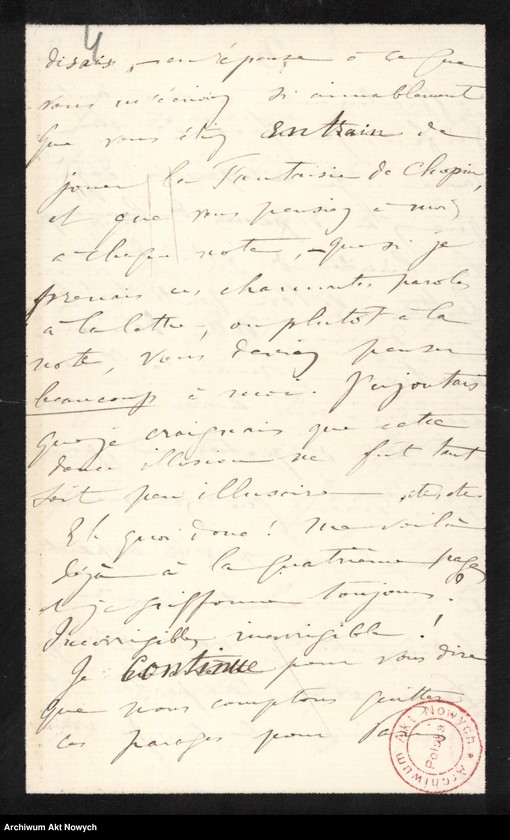 4
disais, – en réponse à ce que
vous m'écriviez si aimablement
que vous étiez entrain de
jouer la Fantaisie de Chopin,
et que vous pensiez à moi
à chaque note, – que si je
prenais ces charmantes paroles
à la lettre, ou plutôt à la
note, vous deviez penser
beaucoup à moi. J'ajoutais
que je craignais que cette
douce illusion ne fût tant
soit peu illusoire
Eh quoi donc! Me voilà
déjà à la quatrième page
et je griffonne toujours!
Incorrigible, incorrigible!
Je continue pour vous dire
que nous comptons quitter
ces parages pour
Archiwum Akt Nowych
Polska
Archiwum Akt Nowych